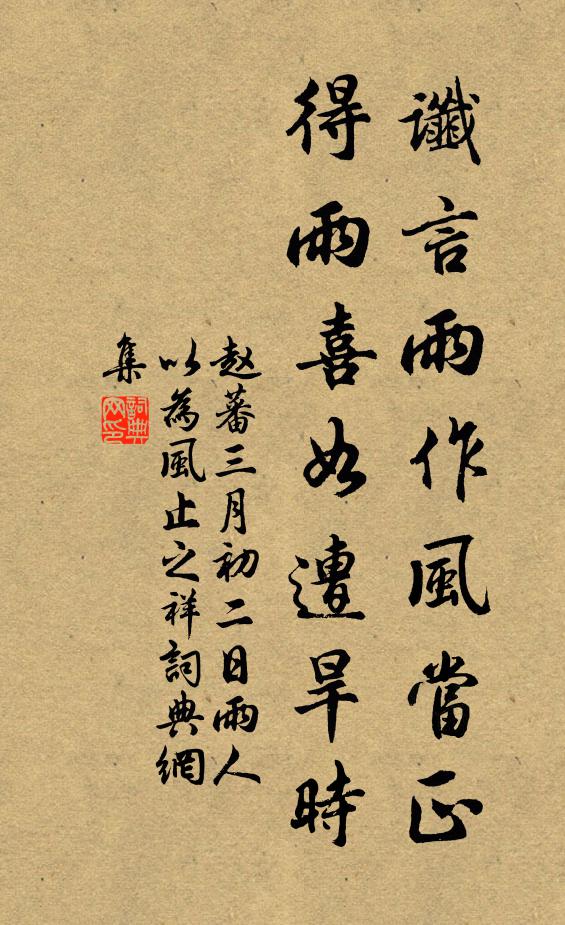 讖言雨作風當正
得雨喜如遭旱時
赵蕃三月初二日雨人
以為風止之祥詞典網
集
詞典
网印